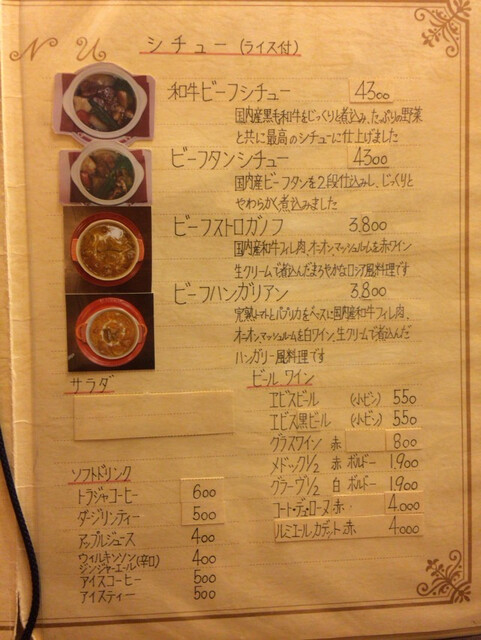 N U
シチュー (ライス付)
和牛ビーフシチュー 4300
国内産黒毛和牛をじっくり煮込み、たっぷりの野菜
と共に最高のシチューに仕上げました
ビーフタンシチュー 4300
国内産ビーフタンを2段仕込みし、じっくりと
やわらかく煮込みました
ビーフストロガノフ 3.800
国内産和牛フィレ肉、オニオン、マッシュルームを赤ワイン
生クリームで煮込んだまろやかなロシア風料理です
ビーフハンガリアン 3.800
完熟トマトとパプリカをベースに国内産和牛フィレ肉、
オニオン、マッシュルームを白ワイン、生クリームで煮込んだ
ハンガリー風料理です
サラダ
ソフトドリンク
トラジャコーヒー 600
ダージリンティー 500
アップルジュース 400
ウィルキンソン
ジンジャーエール(辛口) 400
アイスコーヒー 500
アイスティー 500
ビール ワイン
エビスビール (小ビン) 550
エビス黒ビール (小ビン) 550
グラスワイン 赤 800
メドック1/2 赤 ボルドー 1.900
グラーヴ1/2 白 ボルドー 1.900
コート・デュ・ローヌ 赤 4.000
ルミエール、カデット 赤 4.000